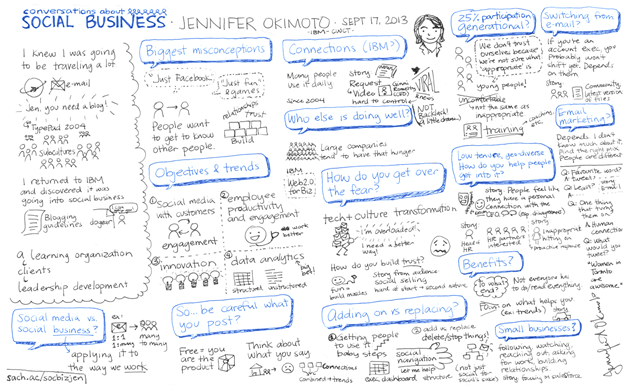 conversations about
SOCIAL BUSINESS · JENNIFER OKIMOTO · SEPT 17, 2013
I knew I was going
to be traveling a lot
e-mail
Jen, you need a blog!
TypePad 2004
Subcultures
I returned to IBM
and discovered it was
going into social business
Blogging
guidelines
a learning organization
clients
leadership development
Social media vs.
social business?
1:1
1:many
many
to many
applying it to
the way we work
sach.ac/socbizjen
Biggest misconceptions
Just Facebook
Just fun
& games
relationships
trust
Build
People want
to get to know
other people.
Objectives & trends
① social media
with customers
engagement
② employee
productivity
and engagement
work
better
③ innovation
④ data analytics
structured
unstructured
So... be careful what
you post?
Free = you
are the
product
Think about
what you say
Connections
combined + trends
Connections (IBM?)
Many people
use it daily
since 2009
story
Request
Video
hard to control
VIRAL
Who else is doing well?
Large companies
tend to have that hunger
IBM
Web 2.0
How do you get over
the fear?
tech + culture transformation
I'm overloaded!
I need a better
way!
How do you build trust?
fun
build muscles
Story from audience:
social selling
hard @ start → second nature
Adding on vs replacing?
① Getting people
to use it
baby steps
exec dashboard
social
navigation
Let me help
structure
② add vs replace
delete/stop things!
not just
social
social
to sales
25% participation
generational?
We don't trust
ourselves because
we're not sure what
appropriate is
young people!
Uncomfortable
not the same as
inappropriate
training
Low tenure, geo-diverse
How do you help people
get into it?
Story: People feel like
they have a personal
connection with the
story
HR partners
inappropriate
Benefits?
To what
end?
Not everyone has
to do/read everything
Focus on what helps you
(ex: trends)
story
Small businesses?
following, watching,
reaching out, asking
for work, building
relationships.
Switching from
e-mail?
If you're an
account exec, you
probably won't
shift yet. Depends
on them
story
Community, latest version
of files
E-mail
marketing?
Depends. I don't
know much about it.
Find the right mix.
People are different
Q: Favourite word?
A: tweet?
Q: Least?
Q: One thing
that turns
them on?
A: Human
connection
Q: What
would you
tweet?
"Women in
Toronto
are
awesome."